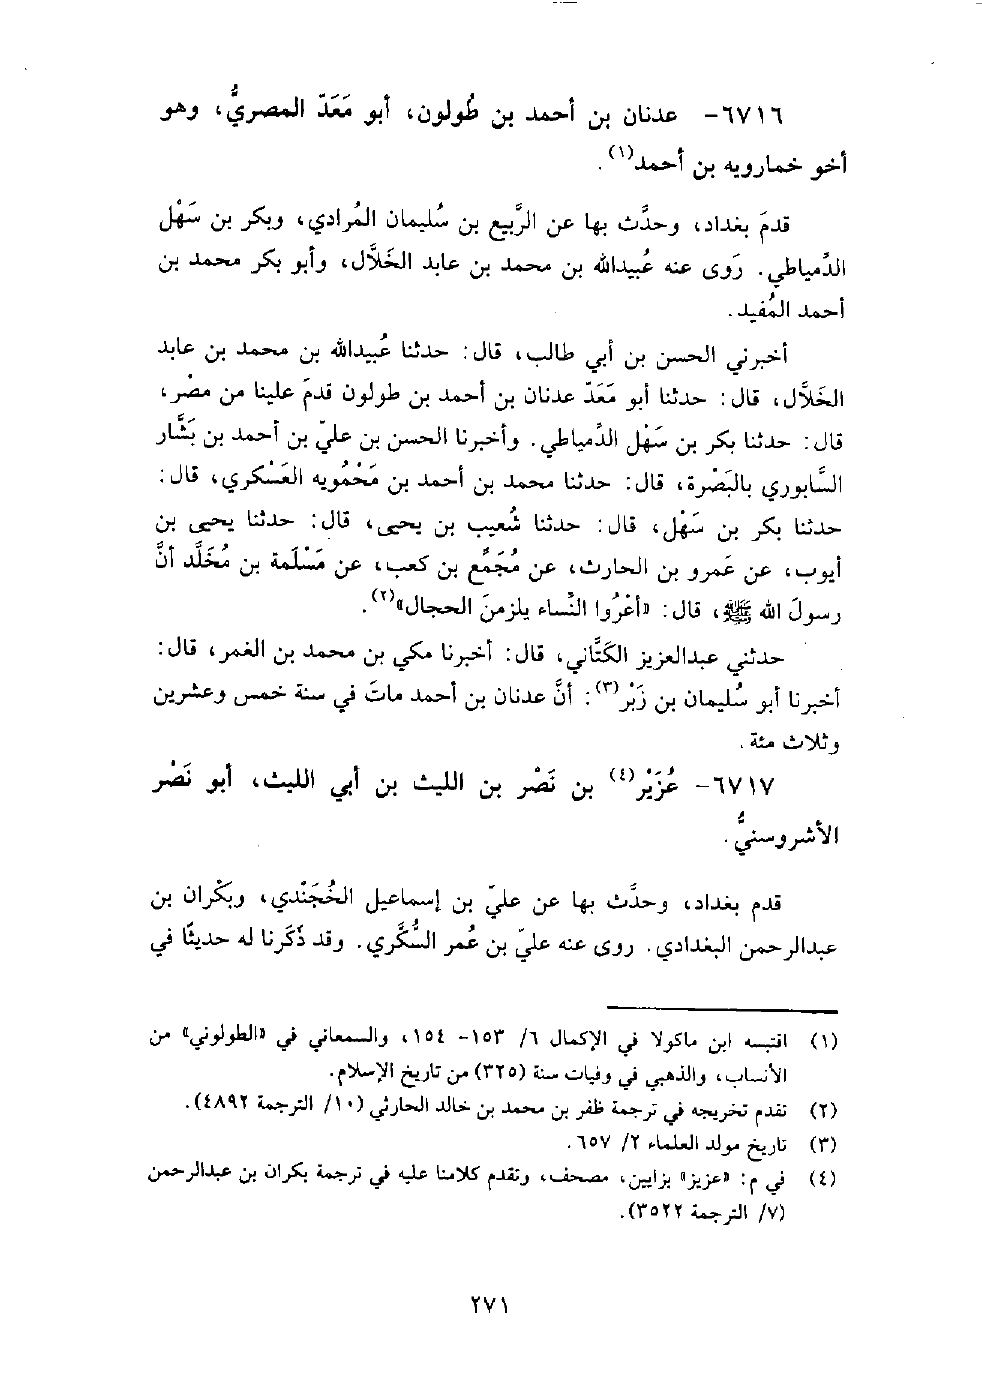 ٦٧١٦- عدنان بن أحمد بن طُولون، أبو مَعَدّ المصريُّ، وهو
أخو خمارويه بن أحمد(١).
قدمَ بغداد، وحدَّث بها عن الرَّبيع بن سُليمان المُرادي، وبكر بن سَهْل
الدِّمياطي. رَوى عنه عُبيدالله بن محمد بن عابد الخَلَّال، وأبو بكر محمد بن
أحمد المُفيد.
أخبرني الحسن بن أبي طالب، قال: حدثنا عُبيدالله بن محمد بن عابد
الخَلَّال، قال: حدثنا أبو مَعَدّ عدنان بن أحمد بن طولون قدمَ علينا من مصْر،
قال: حدثنا بكر بن سَهْل الدِّمياطي. وأخبرنا الحسن بن عليّ بن أحمد بن بَشَّار
السَّابوري بالبَصْرة، قال: حدثنا محمد بن أحمد بن مَحْمُويه العَسْكري، قال:
حدثنا بكر بن سَهْل، قال: حدثنا شُعيب بن يحيى، قال: حدثنا يحيى بن
أيوب، عن عَمرو بن الحارث، عن مُجَمِّع بن كعب، عن مَسْلَمة بن مُخَلَّد أنَّ
رسولَ الله ﷺ، قال: «أعْرُوا النِّساء يلزمنَ الحجال»(٢).
حدثني عبدالعزيز الكَتَّاني، قال: أخبرنا مكي بن محمد بن الغمر، قال:
أخبرنا أبو سُليمان بن زَبْر(٣): أنَّ عدنان بن أحمد ماتَ في سنة خمس وعشرين
وثلاث مئة.
٦٧١٧- عُزَيْر(٤) بن نَصْر بن الليث بن أبي الليث، أبو نَصْر
الأشروسنيُّ.
قدم بغداد، وحدَّث بها عن عليّ بن إسماعيل الخُجَنْدي، وبَكْران بن
عبدالرحمن البغدادي. روى عنه عليّ بن عُمر السُّكَّري. وقد ذَكَرنا له حديثًا في
(١) اقتبسه ابن ماكولا في الإكمال ٦/ ١٥٣- ١٥٤، والسمعاني في «الطولوني» من
الأنساب، والذهبي في وفيات سنة (٣٢٥) من تاريخ الإسلام.
(٢) تقدم تخريجه في ترجمة ظفر بن محمد بن خالد الحارثي (١٠/ الترجمة ٤٨٩٢).
(٣) تاريخ مولد العلماء ٢/ ٦٥٧.
(٤) في م: «عزيز» بزايين، مصحف، وتقدم كلامنا عليه في ترجمة بكران بن عبدالرحمن
(٧/ الترجمة ٣٥٢٢).
٢٧١